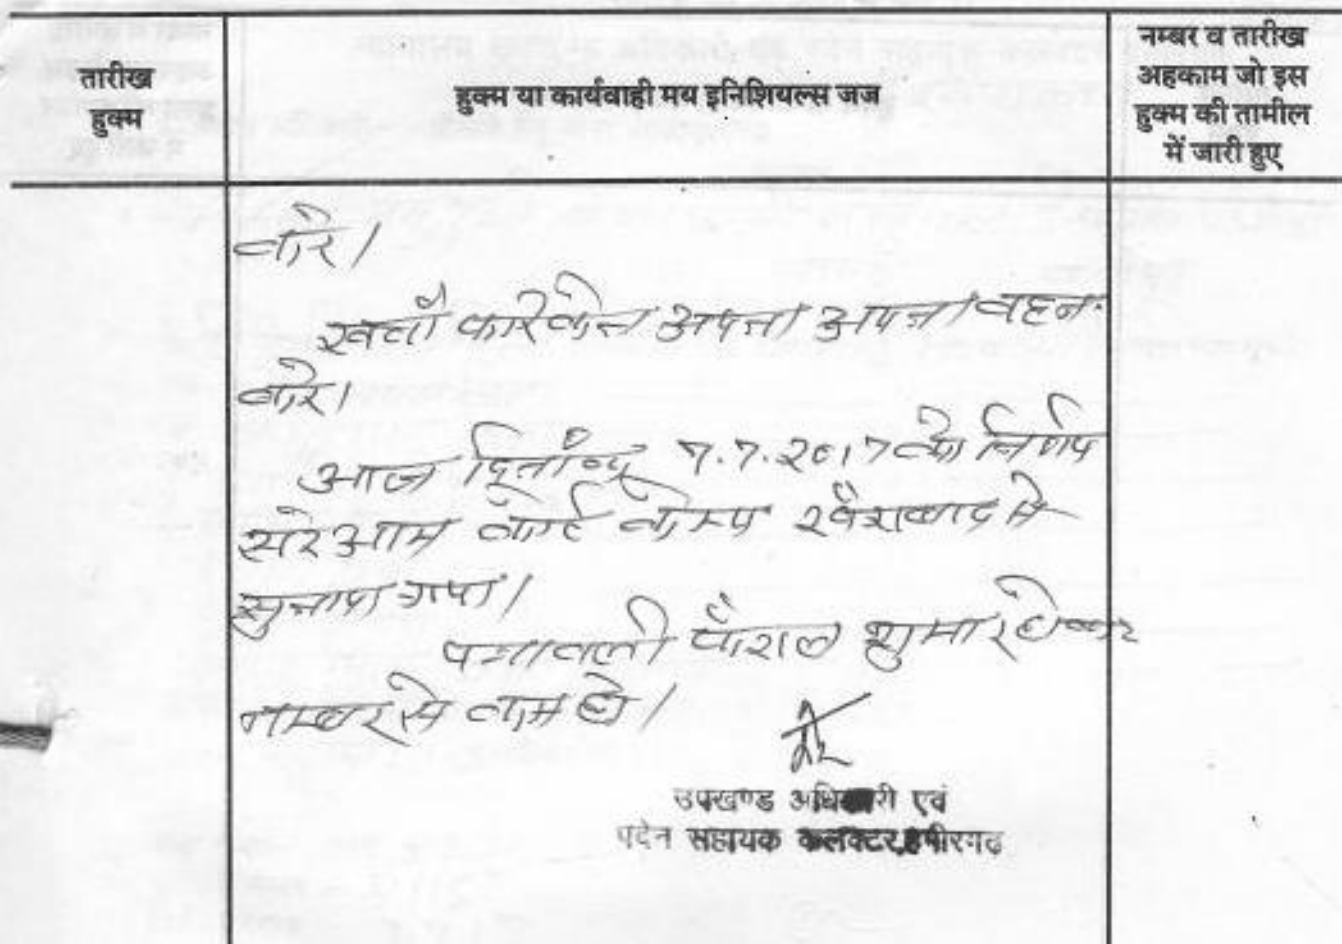 तारीख
हुक्म
हुक्म या कार्यवाही मय इनिशियल्स जज
नम्बर व तारीख
अहकाम जो इस
हुक्म की तामील
में जारी हुए
करे।
खर्चा फरिकेन अपना अपना वहन
करे।
आज दिनांक 7.7.2017 को निर्णय
सरे आम कोर्ट केम्प खैराबाद मे
सुनाया गया।
पत्रावली फैशल शुमार होकर
नम्बर से कम हो।
उपखण्ड अधिकारी एवं
पदेन सहायक कलक्टर,हमीरगढ